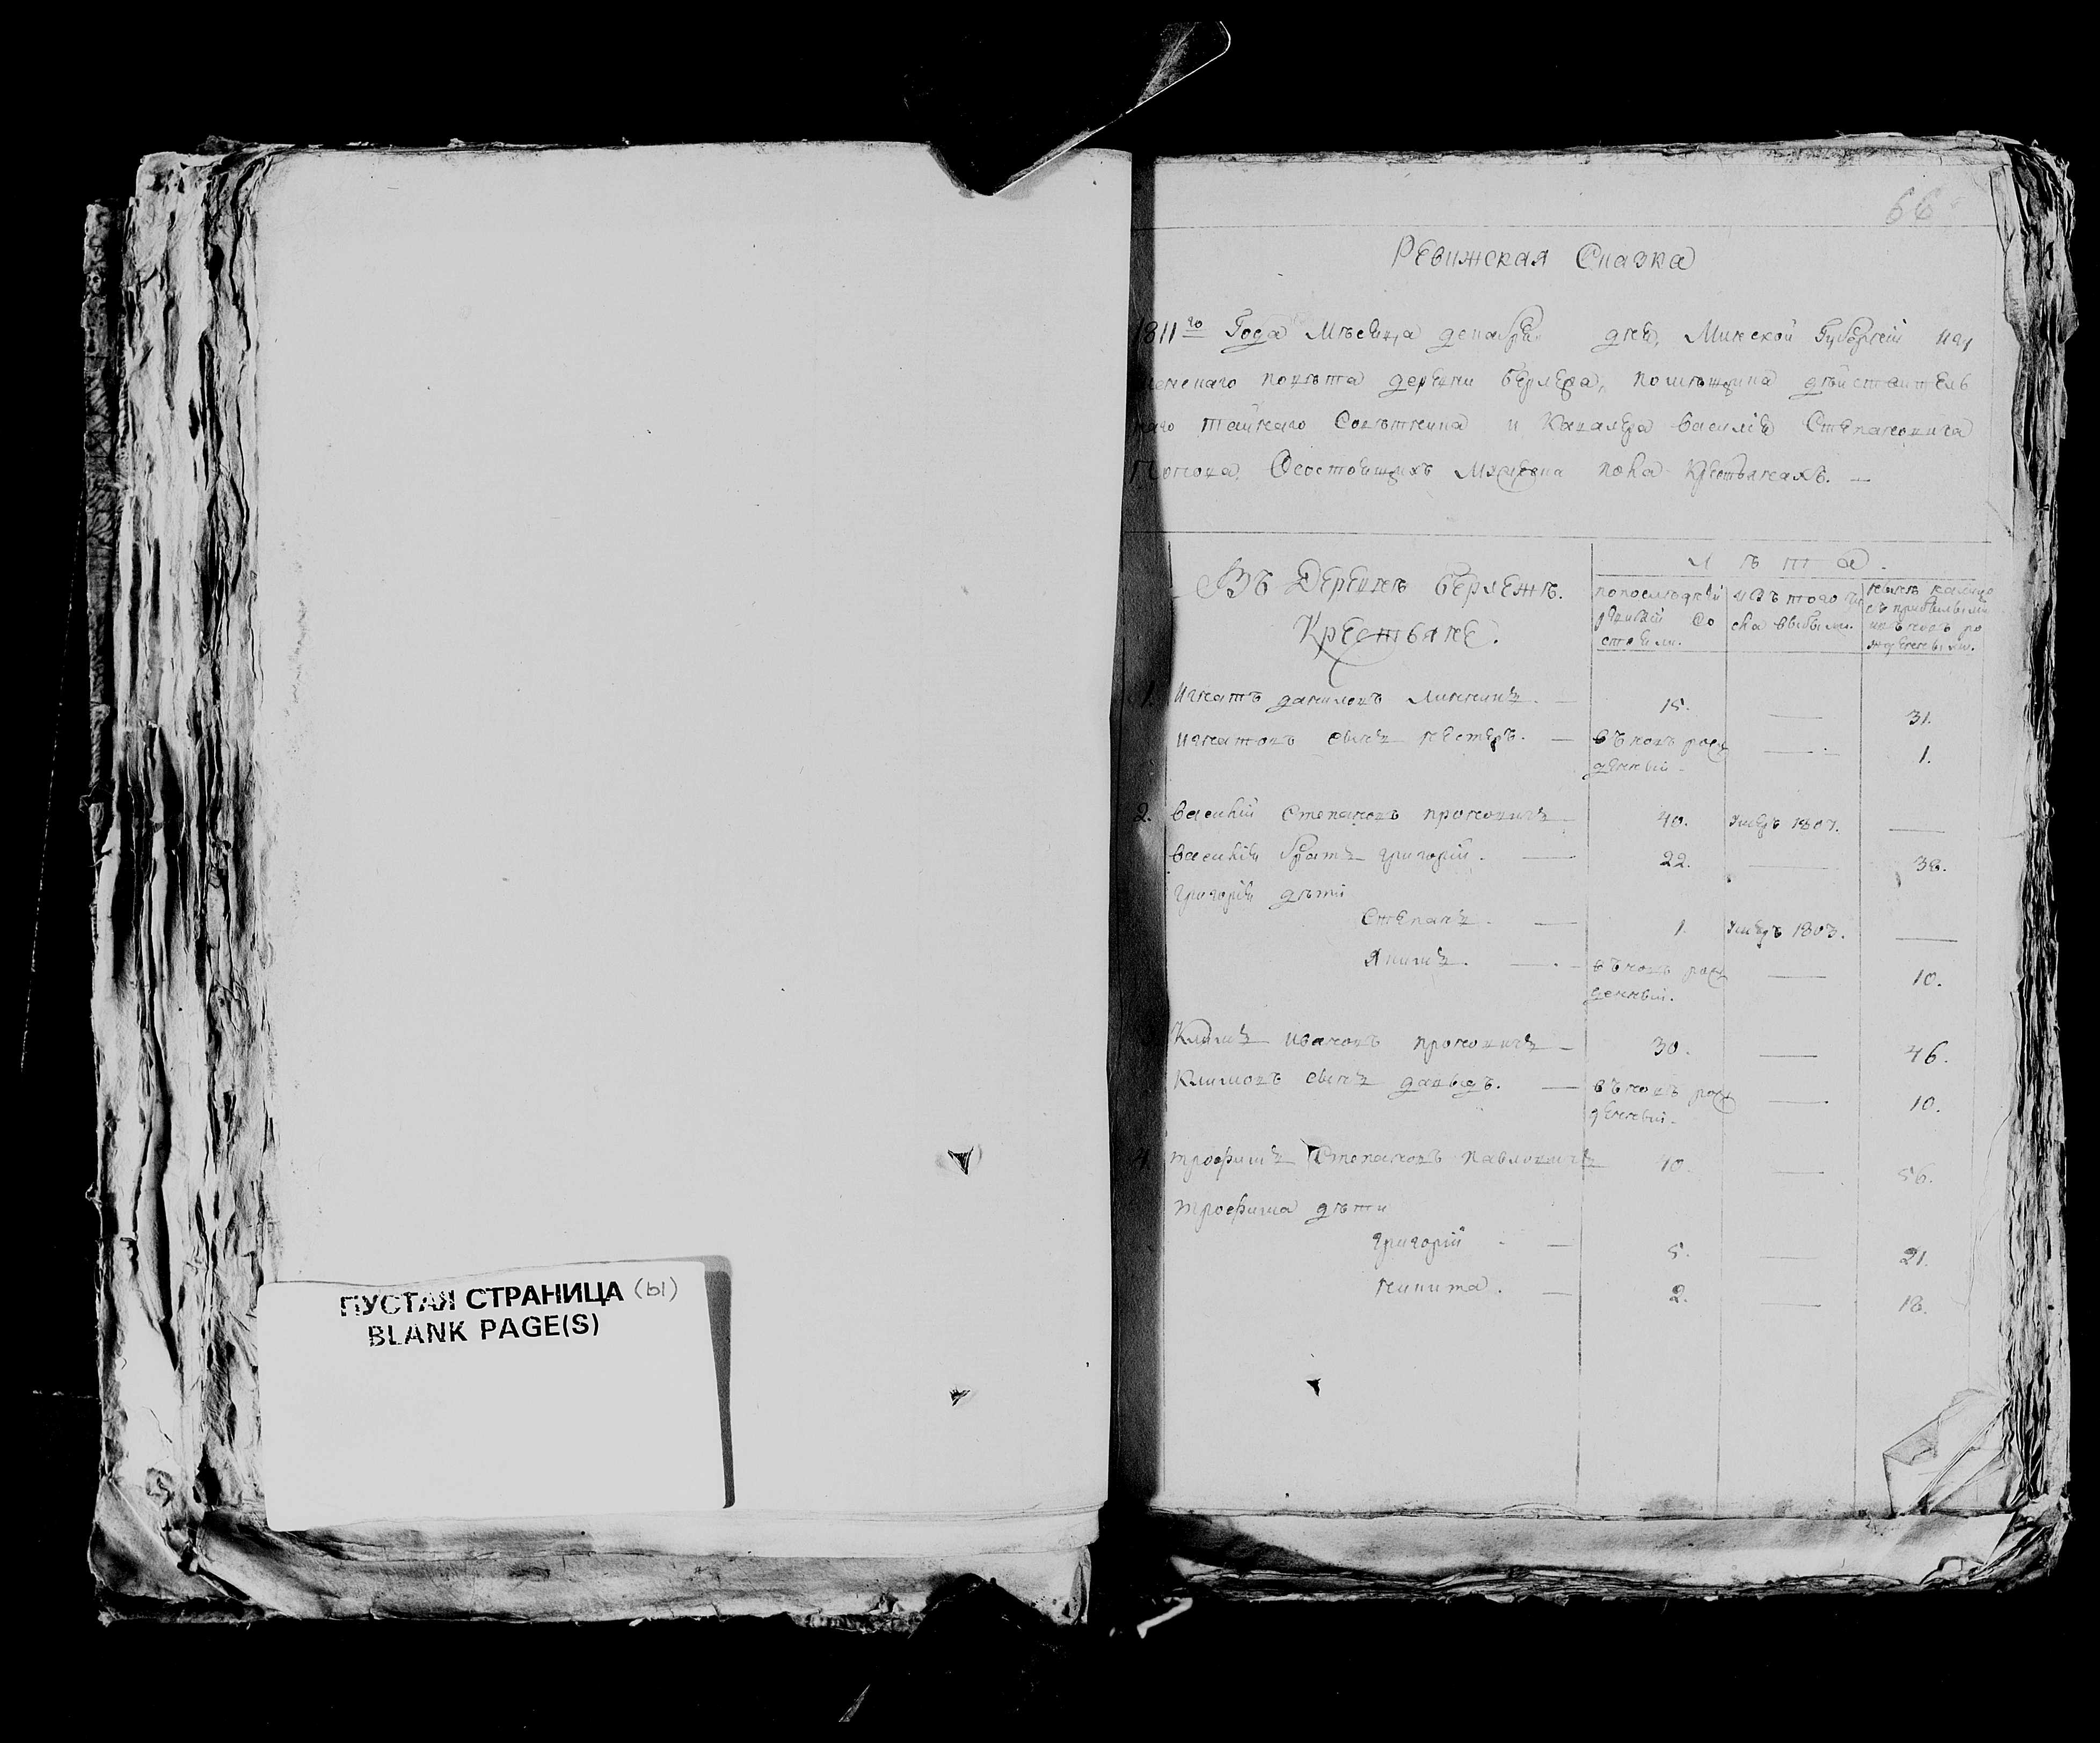 ПУСТАЯ СТРАНИЦА (ы)
BLANK PAGE(S)
66
Ревижская Сказка
1811го Года Мѣсяца декабря дня, Минской Губерніи
повѣта деревни Берлежа, помѣщика дѣйствитель
наго тайнаго Совѣтника и Кавалера Василія Степановича
Осостоящихъ Мужеска пола Крестьянахъ.
Въ Деревнѣ Берлежѣ.
Крестьяне.
Лѣта.
попослѣдней
ревизіи со
стояли.
изъ того чи
сла выбыли.
нынѣ налицо
съ прибылыми
ивновь ро
жденными.
1. Игнатъ даниловъ Линникъ. — 15. — 31.
игнатовъ сынъ нестеръ. — въновь рож
денный — 1.
2. василій Степановъ прокопичъ 40. Умеръ 1807. —
василія братъ григорій. — 22. — 38.
григорія дѣти
Степанъ. — 1 Умеръ 1803. —
Якимъ. — въновь рож
денный. — 10.
Климъ ивановъ прокопичъ — 30. — 46.
Климовъ сынъ давыдъ. — въновь рож
денный. — 10.
4. трофимъ Степановъ павловичъ 40. — 56.
трофима дѣти
григорій — 5. — 21.
никита. — 2. — 18.